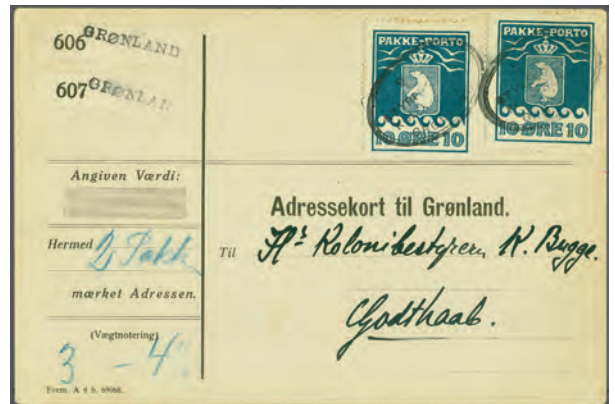 606 GRØNLAND
607 GRØNLAN
PAKKE-PORTO
10 ØRE 10
PAKKE-PORTO
10 ØRE 10
Angiven Værdi:
Hermed 2 Pakk
mærket Adressen.
(Vægtnotering)
3 - 4
Adressekort til Grønland.
Til Hr. Kolonibestyrer K. Bugge.
Godthaab.
Evem. A 4 b. 69068.